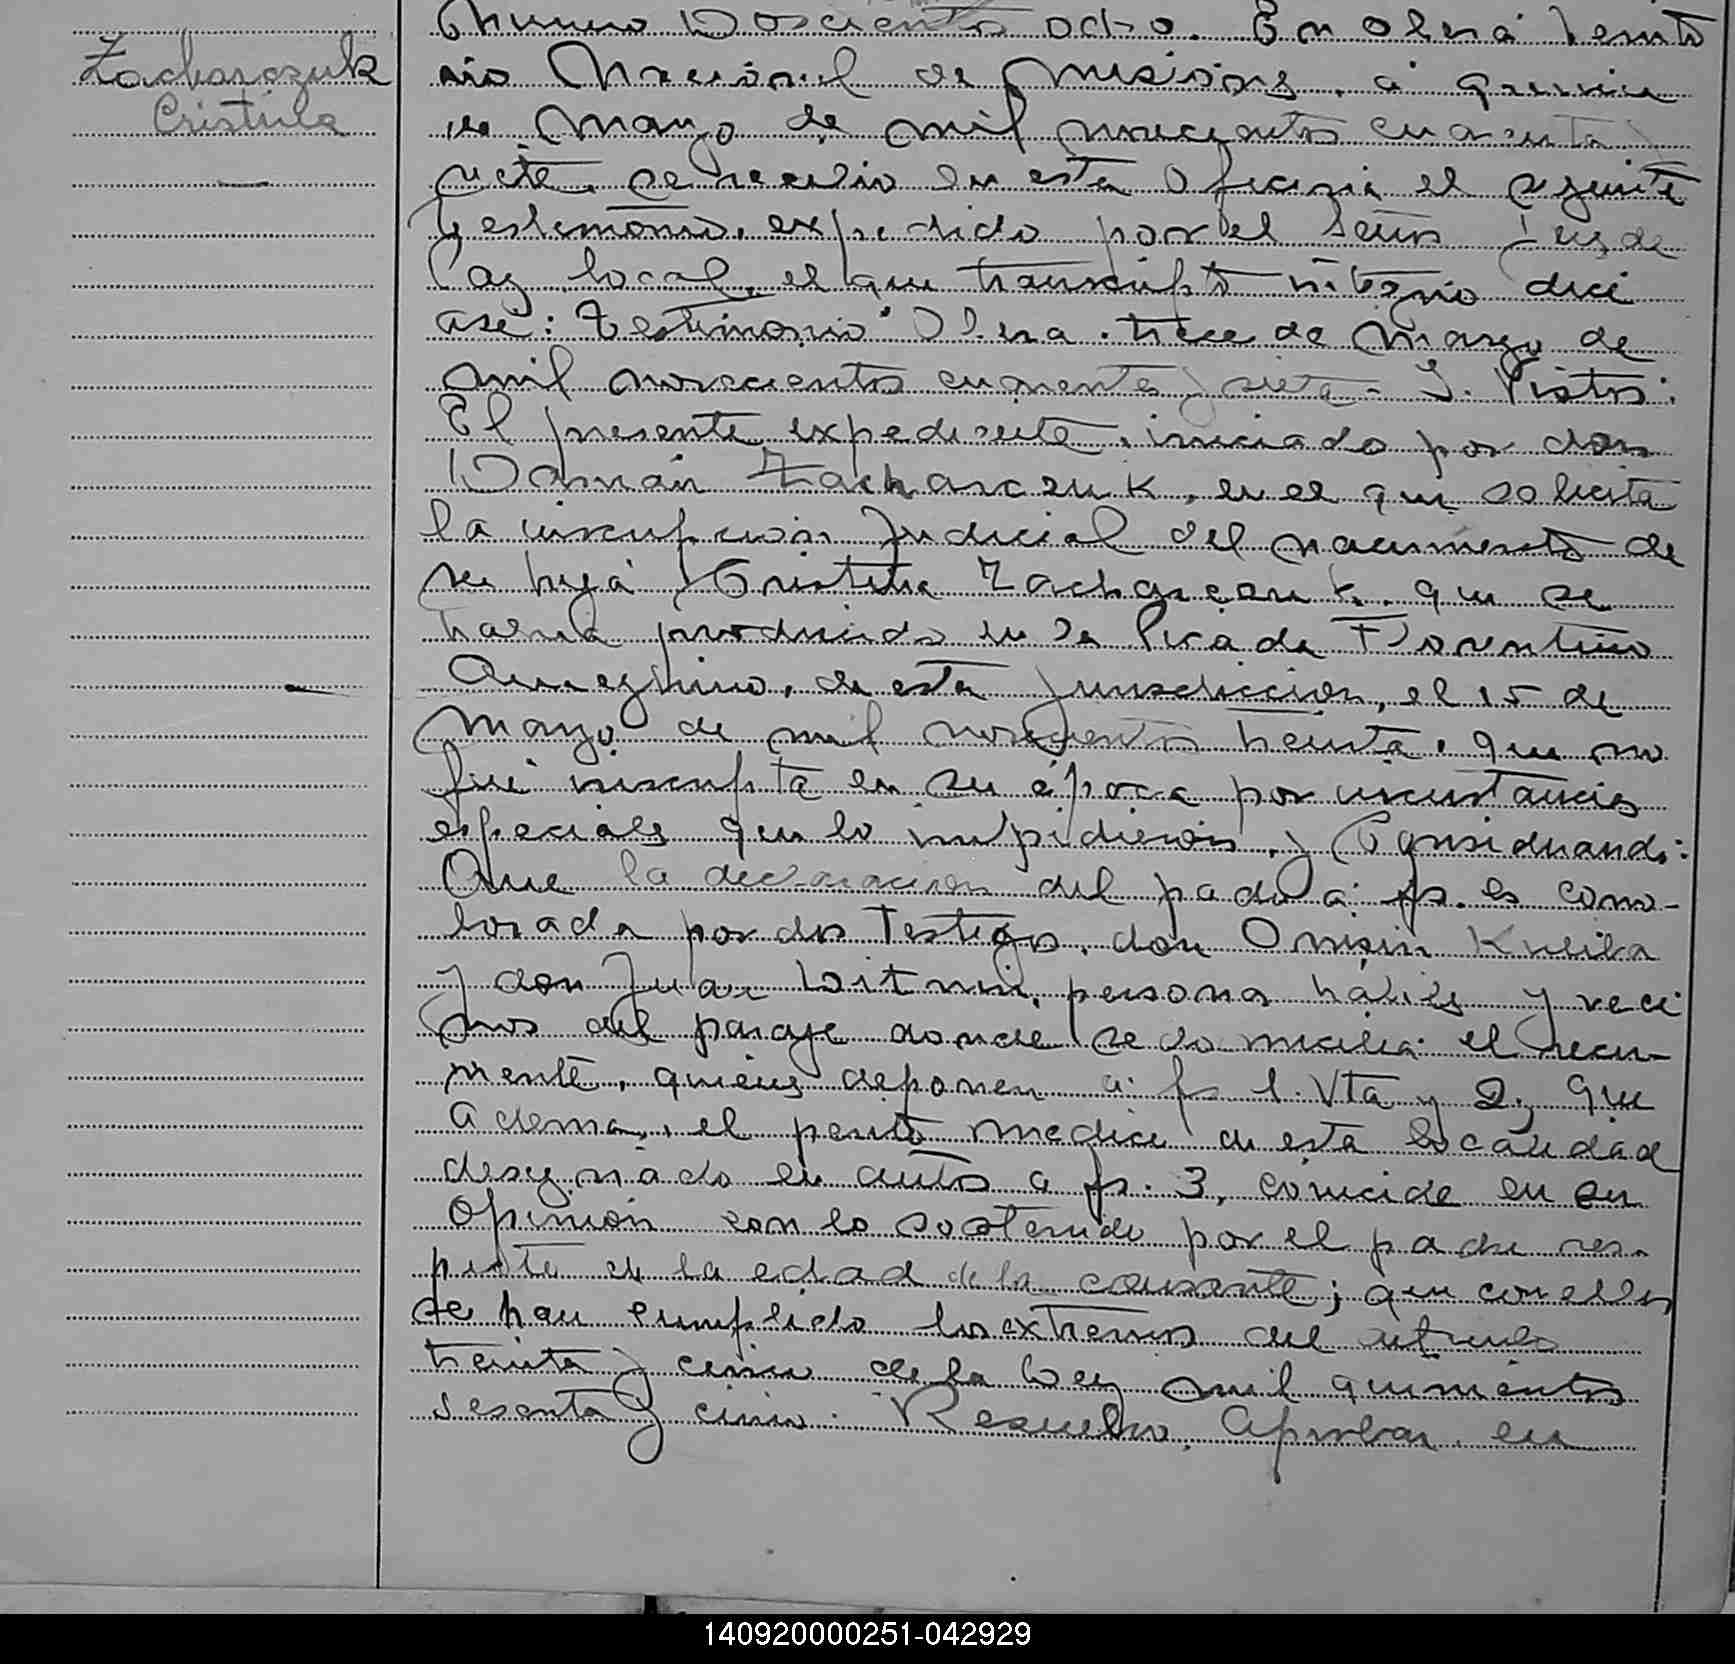 Zacharczuk
Cristina
Número Doscientos ocho. En Oberá Territo
rio Nacional de Misiones, a quince
de Marzo de mil novecientos cuarenta y
siete, se recibió en esta Oficina el siguiente
testimonio, expedido por el Señor Juez de
Paz local, el que transcripto íntegro dice
así: Testimonio" Oberá, trece de Marzo de
mil novecientos cuarenta y siete - Y. Vistos:
El presente expediente, iniciado por don
Damián Zacharczuk, en el que solicita
la inscripción Judicial del nacimiento de
su hija Cristina Zacharczuk, que se
habría producido en la Picada Florentino
Ameghino, de esta jurisdicción, el 15 de
Marzo de mil novecientos treinta, que no
fué inscripta en su época por circustancias
especiales que lo impidieron, y Considerando:
Que la declaración del padre a fs. es corro-
borada por dos Testigos, don Onisin
y don Juan personas hábiles y veci
nos del paraje donde se domicilia el recu-
rrente, quienes deponen a fs 1. Vta y 2, que
además, el perito médico de esta localidad
designado en autos a fs. 3, coincide en su
opinión con lo sostenido por el padre res-
pecto de la edad de la causante; que con ello
se han cumplido los extremos del artículo
treinta y cinco de la Ley mil quinientos
sesenta y cinco. Resuelvo, Aprobar en
140920000251-042929